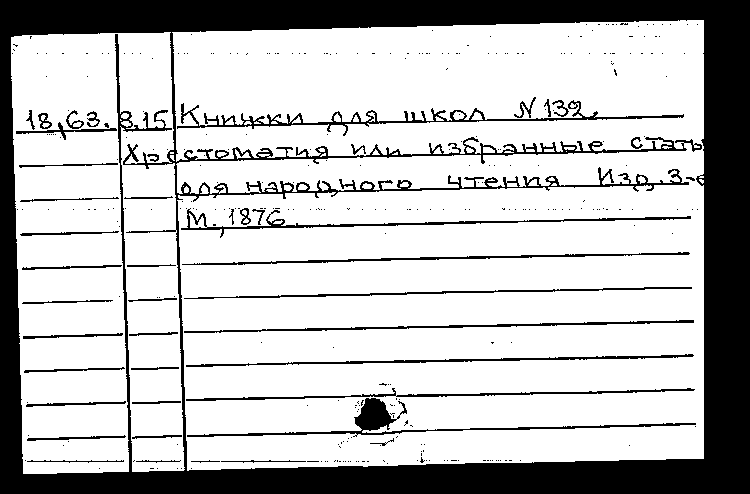 18,63.8.15 Книжки для школ N 132.
Хрестоматия или избранные стать
для народного чтения Изд. 3-е
М., 1876